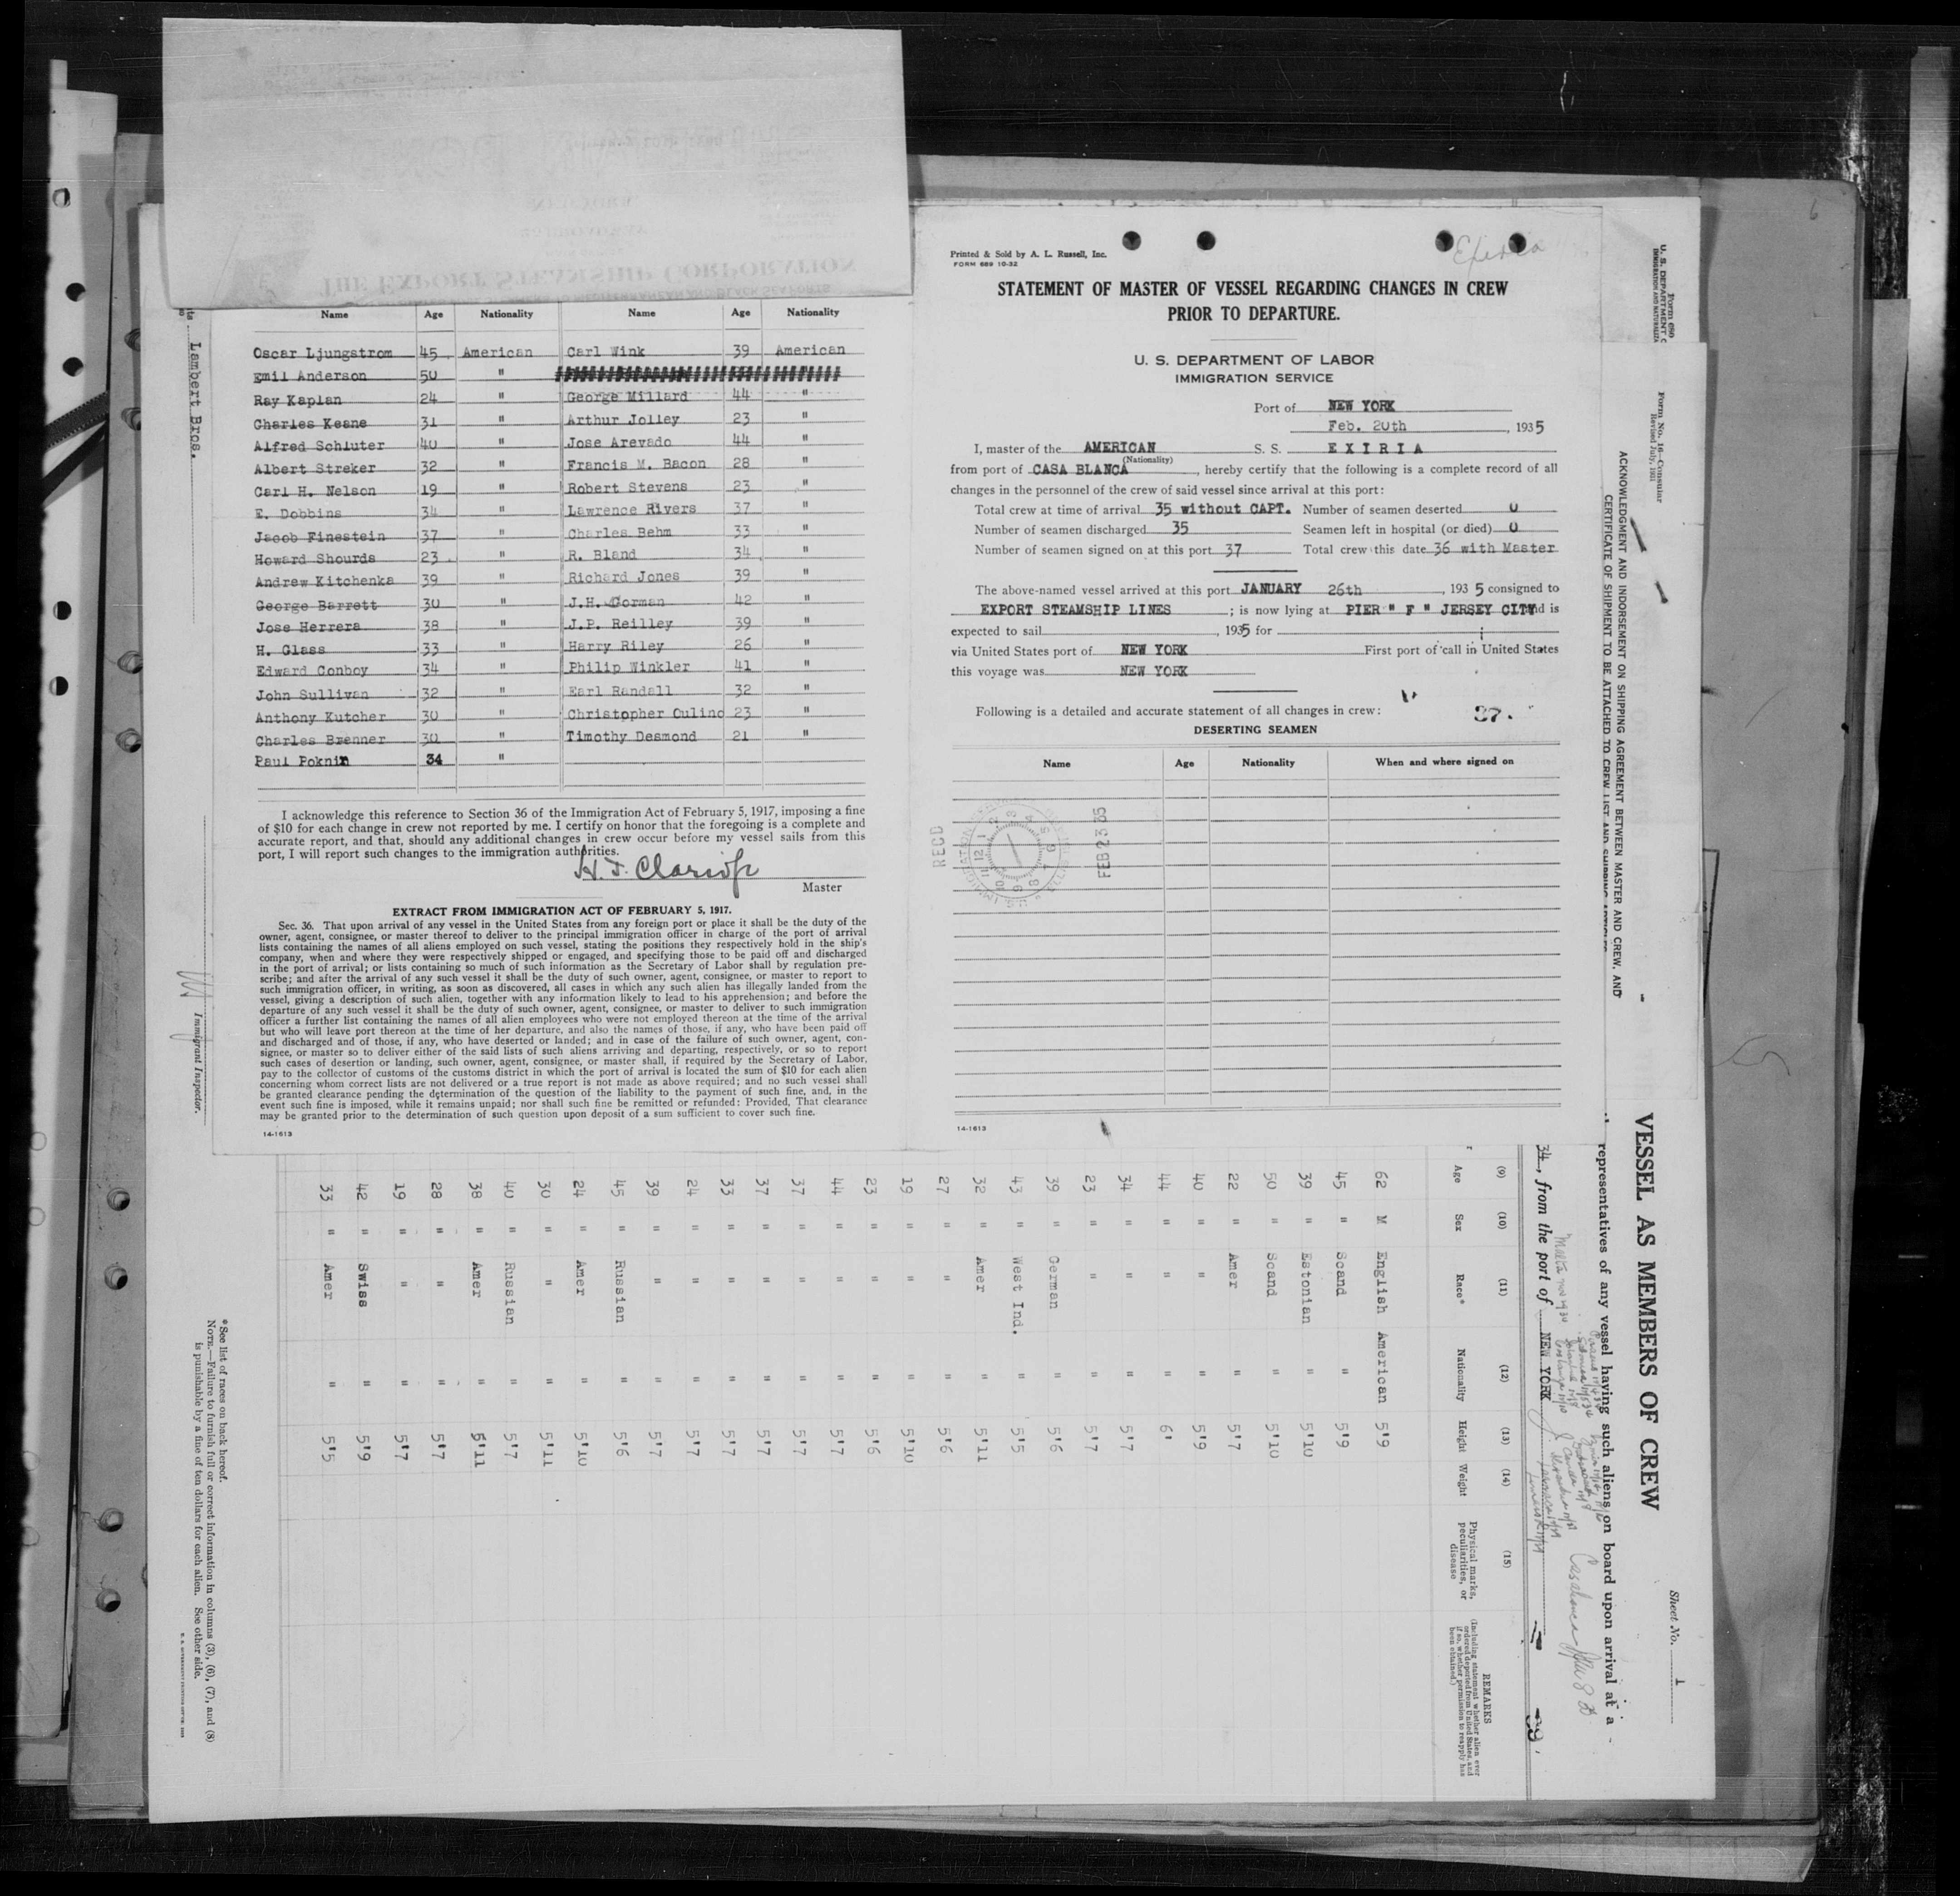 THE EXPORT STEAMSHIP CORPORATION
Name Age Nationality Name Age Nationality
Oscar Ljungstrom 45 American Carl Wink 39 American
Emil Anderson 50 "
Ray Kaplan 24 " George Millard 44 "
Charles Keane 31 " Arthur Jolley 23 "
Alfred Schluter 40 " Jose Arevado 44 "
Albert Streker 32 " Francis M. Bacon 28 "
Carl H. Nelson 19 " Robert Stevens 23 "
E. Dobbins 34 " Lawrence Rivers 37 "
Jacob Finestein 37 " Charles Behm 33 "
Howard Shourds 23 " R. Bland 34 "
Andrew Kitchenka 39 " Richard Jones 39 "
George Barrett 30 " J.H. Gorman 42 "
Jose Herrera 38 " J.P. Reilley 39 "
H. Glass 33 " Harry Riley 26 "
Edward Conboy 34 " Philip Winkler 41 "
John Sullivan 32 " Earl Randall 32 "
Anthony Kutcher 30 " Christopher Culino 23 "
Charles Brenner 30 " Timothy Desmond 21 "
Paul Poknin 34 "
I acknowledge this reference to Section 36 of the Immigration Act of February 5, 1917, imposing a fine
of $10 for each change in crew not reported by me. I certify on honor that the foregoing is a complete and
accurate report, and that, should any additional changes in crew occur before my vessel sails from this
port, I will report such changes to the immigration authorities.
Master
EXTRACT FROM IMMIGRATION ACT OF FEBRUARY 5, 1917.
Sec. 36. That upon arrival of any vessel in the United States from any foreign port or place it shall be the duty of the
owner, agent, consignee, or master thereof to deliver to the principal immigration officer in charge of the port of arrival
lists containing the names of all aliens employed on such vessel, stating the positions they respectively hold in the ship's
company, when and where they were respectively shipped or engaged, and specifying those to be paid off and discharged
in the port of arrival; or lists containing so much of such information as the Secretary of Labor shall by regulation pre-
scribe; and after the arrival of any such vessel it shall be the duty of such owner, agent, consignee, or master to report to
such immigration officer, in writing, as soon as discovered, all cases in which any such alien has illegally landed from the
vessel, giving a description of such alien, together with any information likely to lead to his apprehension; and before the
departure of any such vessel it shall be the duty of such owner, agent, consignee, or master to deliver to such immigration
officer a further list containing the names of all alien employees who were not employed thereon at the time of the arrival
but who will leave port thereon at the time of her departure, and also the names of those, if any, who have been paid off
and discharged and of those, if any, who have deserted or landed; and in case of the failure of such owner, agent, con-
signee, or master so to deliver either of the said lists of such aliens arriving and departing, respectively, or so to report
such cases of desertion or landing, such owner, agent, consignee, or master shall, if required by the Secretary of Labor,
pay to the collector of customs of the customs district in which the port of arrival is located the sum of $10 for each alien
concerning whom correct lists are not delivered or a true report is not made as above required; and no such vessel shall
be granted clearance pending the determination of the question of the liability to the payment of such fine, and, in the
event such fine is imposed, while it remains unpaid; nor shall such fine be remitted or refunded: Provided, That clearance
may be granted prior to the determination of such question upon deposit of a sum sufficient to cover such fine.
14-1613
Printed & Sold by A. L. Russell, Inc.
FORM 689 10-32
STATEMENT OF MASTER OF VESSEL REGARDING CHANGES IN CREW
PRIOR TO DEPARTURE.
U. S. DEPARTMENT OF LABOR
IMMIGRATION SERVICE
Port of NEW YORK
Feb. 20th, 1935
I, master of the AMERICAN S. S. EXIRIA
(Nationality)
from port of CASA BLANCA, hereby certify that the following is a complete record of all
changes in the personnel of the crew of said vessel since arrival at this port:
Total crew at time of arrival 35 without CAPT. Number of seamen deserted 0
Number of seamen discharged 35 Seamen left in hospital (or died) 0
Number of seamen signed on at this port 37 Total crew this date 36 with Master
The above-named vessel arrived at this port JANUARY 26th, 1935 consigned to
EXPORT STEAMSHIP LINES; is now lying at PIER " F " JERSEY CITY and is
expected to sail, 1935 for
via United States port of NEW YORK First port of call in United States
this voyage was NEW YORK
Following is a detailed and accurate statement of all changes in crew:
37.
DESERTING SEAMEN
Name Age Nationality When and where signed on
RECD
FEB 23 35
14-1613
Lambert Bros.
Immigrant Inspector.
Form 680
U. S. DEPARTMENT O
Form No. 16—Consular
Revised July, 1931
ACKNOWLEDGMENT AND INDORSEMENT ON SHIPPING AGREEMENT BETWEEN MASTER AND CREW, AND
CERTIFICATE OF SHIPMENT TO BE ATTACHED TO CREW LIST AND SHIPPING ARTICLES
VESSEL AS MEMBERS OF CREW
Sheet No. 1
representatives of any vessel having such aliens on board upon arrival at a
34, from the port of NEW YORK
(9) (10) (11) (12) (13) (14) (15)
Age Sex Race* Nationality Height Weight Physical marks, peculiarities, or disease
REMARKS
(Including statement whether alien ever ordered deported from United States, and if so, whether permission to reapply has been obtained.)
62 M English American 5'9
45 " Scand " 5'9
39 " Estonian " 5'10
50 " Scand " 5'10
22 " Amer " 5'7
40 " " " 5'9
44 " " " 6'
34 " " " 5'7
23 " " " 5'7
39 " German " 5'6
43 " West Ind. " 5'5
32 " Amer " 5'11
27 " " " 5'6
19 " " " 5'10
23 " " " 5'6
44 " " " 5'7
37 " " " 5'7
37 " " " 5'7
33 " " " 5'7
24 " " " 5'7
39 " " " 5'7
45 " Russian " 5'6
24 " Amer " 5'10
30 " " " 5'11
40 " Russian " 5'7
38 " Amer " 5'11
28 " " " 5'7
19 " " " 5'7
42 " Swiss " 5'9
33 " Amer " 5'5
*See list of races on back hereof.
NOTE.—Failure to furnish full or correct information in columns (3), (6), (7), and (8)
is punishable by a fine of ten dollars for each alien. See other side.